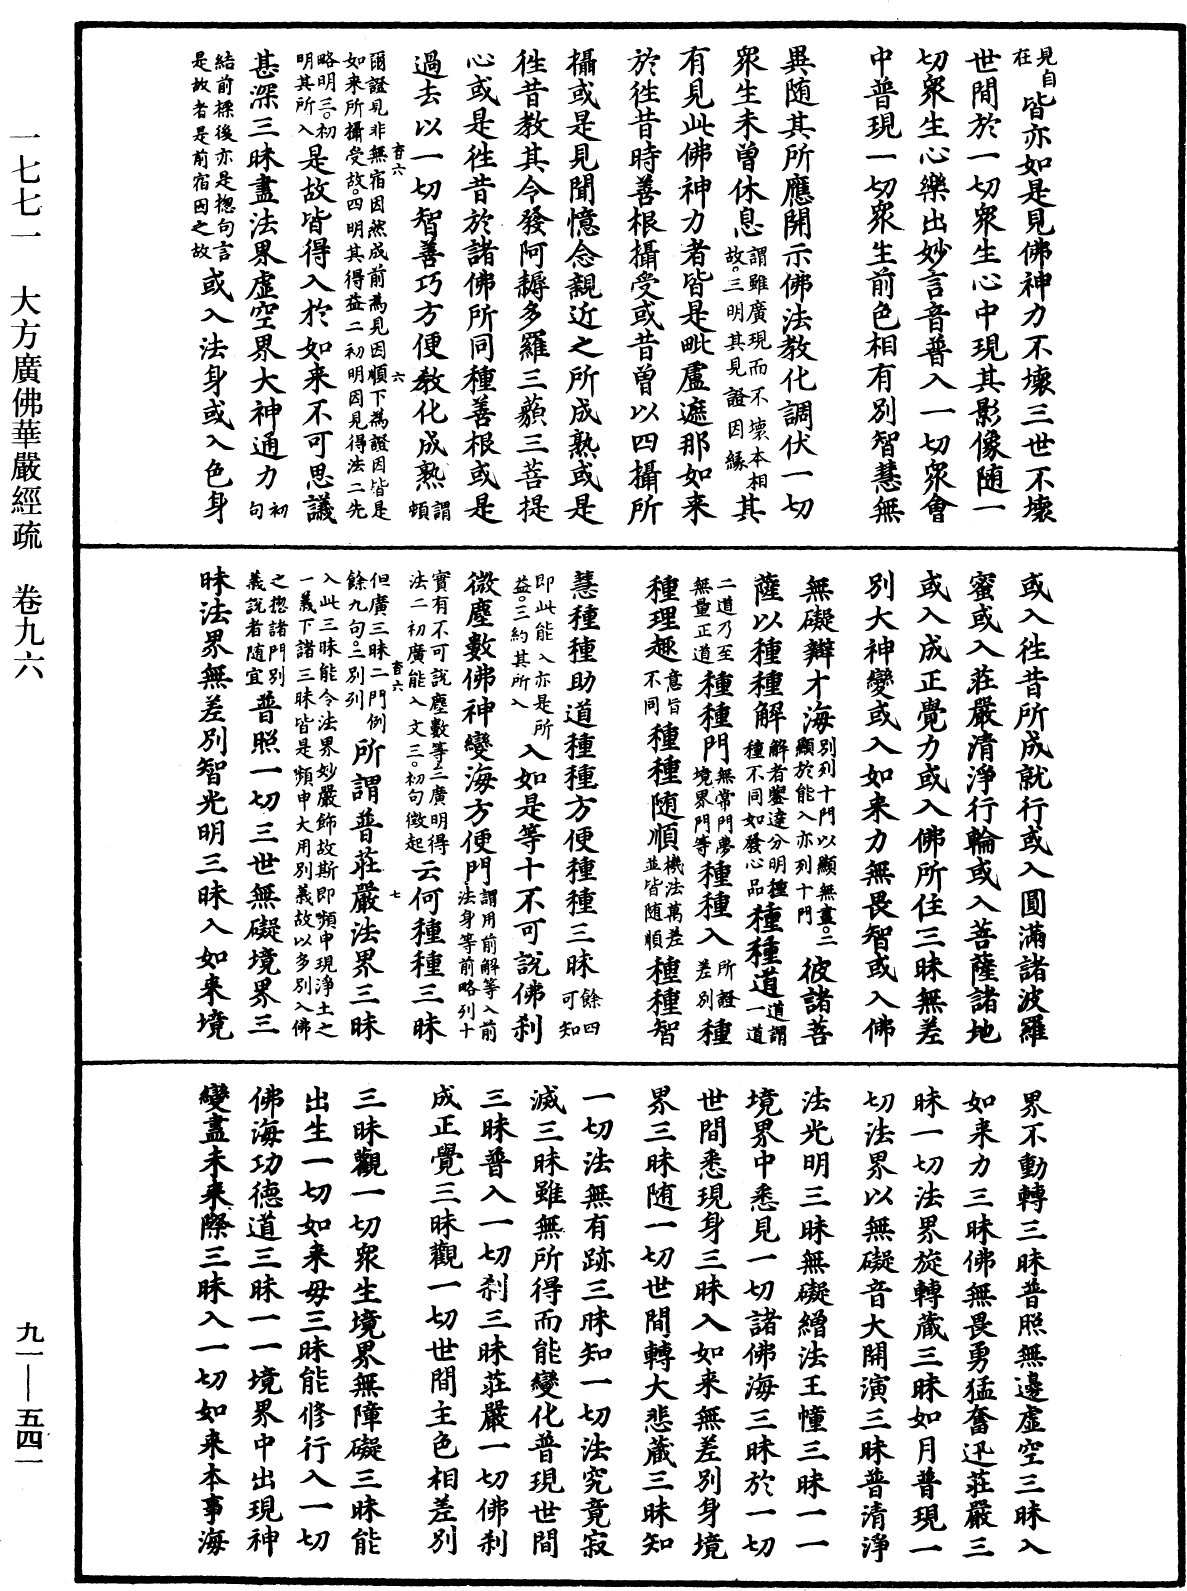 見自在皆亦如是見佛神力不壞三世不壞
世間於一切衆生心中現其影像随一
切衆生心樂出妙言音普入一切衆會
中普現一切衆生前色相有別智慧無
異随其所應開示佛法教化調伏一切
衆生未曾休息謂雖廣現而不壞本相故。三明其見證因緣其
有見此佛神力者皆是毗盧遮那如来
於徃昔時善根攝受或昔曾以四攝所
攝或是見聞憶念親近之所成熟或是
徃昔教其令發阿耨多羅三藐三菩提
心或是徃昔於諸佛所同種善根或是
過去以一切智善巧方便教化成熟謂頓
爾證見非無宿因然成前為見因順下為證因皆是
如来所攝受故。四明其得益二初明因見得法二先
略明三。初明其所入是故皆得入於如来不可思議
甚深三昧盡法界虛空界大神通力初句
結前標後亦是揔句言是故者是前宿因之故或入法身或入色身
或入徃昔所成就行或入圓滿諸波羅
蜜或入莊嚴清淨行輪或入菩薩諸地
或入成正覺力或入佛所住三昧無差
別大神變或入如来力無畏智或入佛
無礙辯才海別列十門以顯無盡。二顯於能入亦列十門彼諸菩
薩以種種解解者鑒達分明種種不同如發心品種種道道謂一道
二道乃至無量正道種種門無常門夢境界門等種種入所證差別種
種理趣意旨不同種種随順機法萬差並皆随順種種智
慧種種助道種種方便種種三昧餘四可知
即此能入亦是所益。三約其所入入如是等十不可說佛刹
微塵數佛神變海方便門謂用前解等入前法身等前略列十
實有不可說塵數等二廣明得法二初廣能入文三。初句徵起云何種種三昧
但廣三昧二門例餘九句。二別列所謂普莊嚴法界三昧
入此三昧能令法界妙嚴飾故斯即頻申現淨土之
一義下諸三昧皆是頻申大用別義故以多別入佛
之揔諸門別義說者随宜普照一切三世無礙境界三
昧法界無差別智光明三昧入如来境
界不動轉三昧普照無邊虛空三昧入
如来力三昧佛無畏勇猛奮迅莊嚴三
昧一切法界旋轉藏三昧如月普現一
切法界以無礙音大開演三昧普清淨
法光明三昧無礙繒法王幢三昧一一
境界中悉見一切諸佛海三昧於一切
世間悉現身三昧入如来無差別身境
界三昧随一切世間轉大悲藏三昧知
一切法無有跡三昧知一切法究竟寂
滅三昧雖無所得而能變化普現世間
三昧普入一切刹三昧莊嚴一切佛刹
成正覺三昧觀一切世間主色相差別
三昧觀一切衆生境界無障礙三昧能
出生一切如来母三昧能修行入一切
佛海功德道三昧一一境界中出現神
變盡未来際三昧入一切如来本事海
一七七一 大方廣佛華嚴經疏 卷九六
九一—五四一